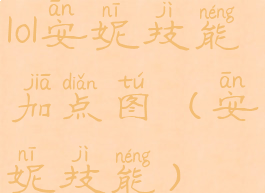 ān nī jì néng
lol安妮技能
jiā diǎn tú ān
加点图（安
nī jì néng
妮技能）